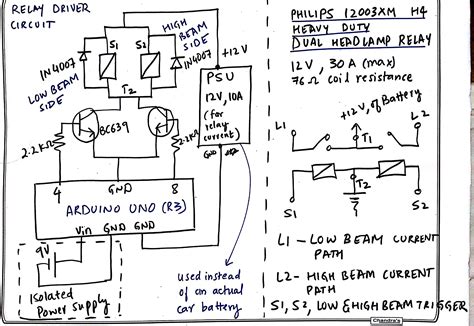 RELAY DRIVER
CIRCUIT
HIGH
BEAM
SIDE
S1
S2
IN4007
IN4007
LOW BEAM
SIDE
T2
+12V
PSU
12V, 10A
(for
relay
current)
GND
BC639
2.2KΩ
2.2KΩ
4
GND
8
ARDUINO UNO (R3)
Vin
GND
GND
9V
Isolated
Power Supply
used instead
of an actual
car battery
PHILIPS 12003XM H4
HEAVY DUTY
DUAL HEADLAMP RELAY
12V, 30A (max)
76Ω coil resistance
+12V, of Battery
L1
L2
T1
T2
S1
S2
L1 - LOW BEAM CURRENT
PATH
L2 - HIGH BEAM CURRENT
PATH
S1, S2, LOW & HIGH BEAM TRIGGER
Chandra's